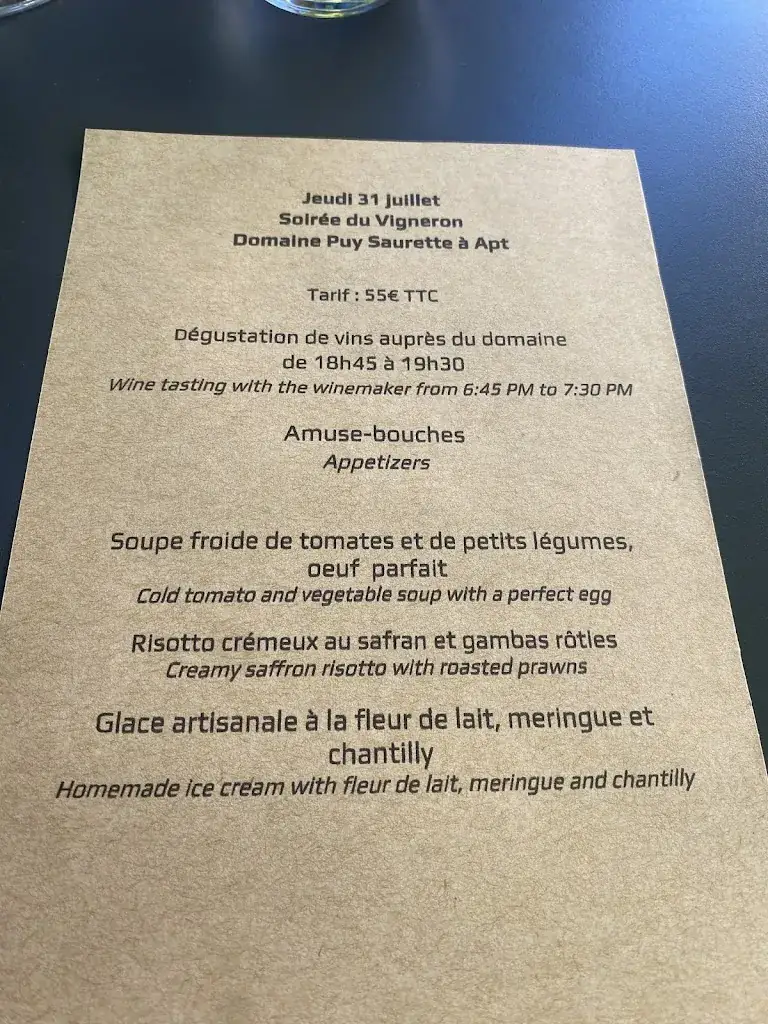 Jeudi 31 juillet
Soirée du Vigneron
Domaine Puy Saurette à Apt
Tarif : 55€ TTC
Dégustation de vins auprès du domaine
de 18h45 à 19h30
Wine tasting with the winemaker from 6:45 PM to 7:30 PM
Amuse-bouches
Appetizers
Soupe froide de tomates et de petits légumes,
oeuf parfait
Cold tomato and vegetable soup with a perfect egg
Risotto crémeux au safran et gambas rôties
Creamy saffron risotto with roasted prawns
Glace artisanale à la fleur de lait, meringue et
chantilly
Homemade ice cream with fleur de lait, meringue and chantilly